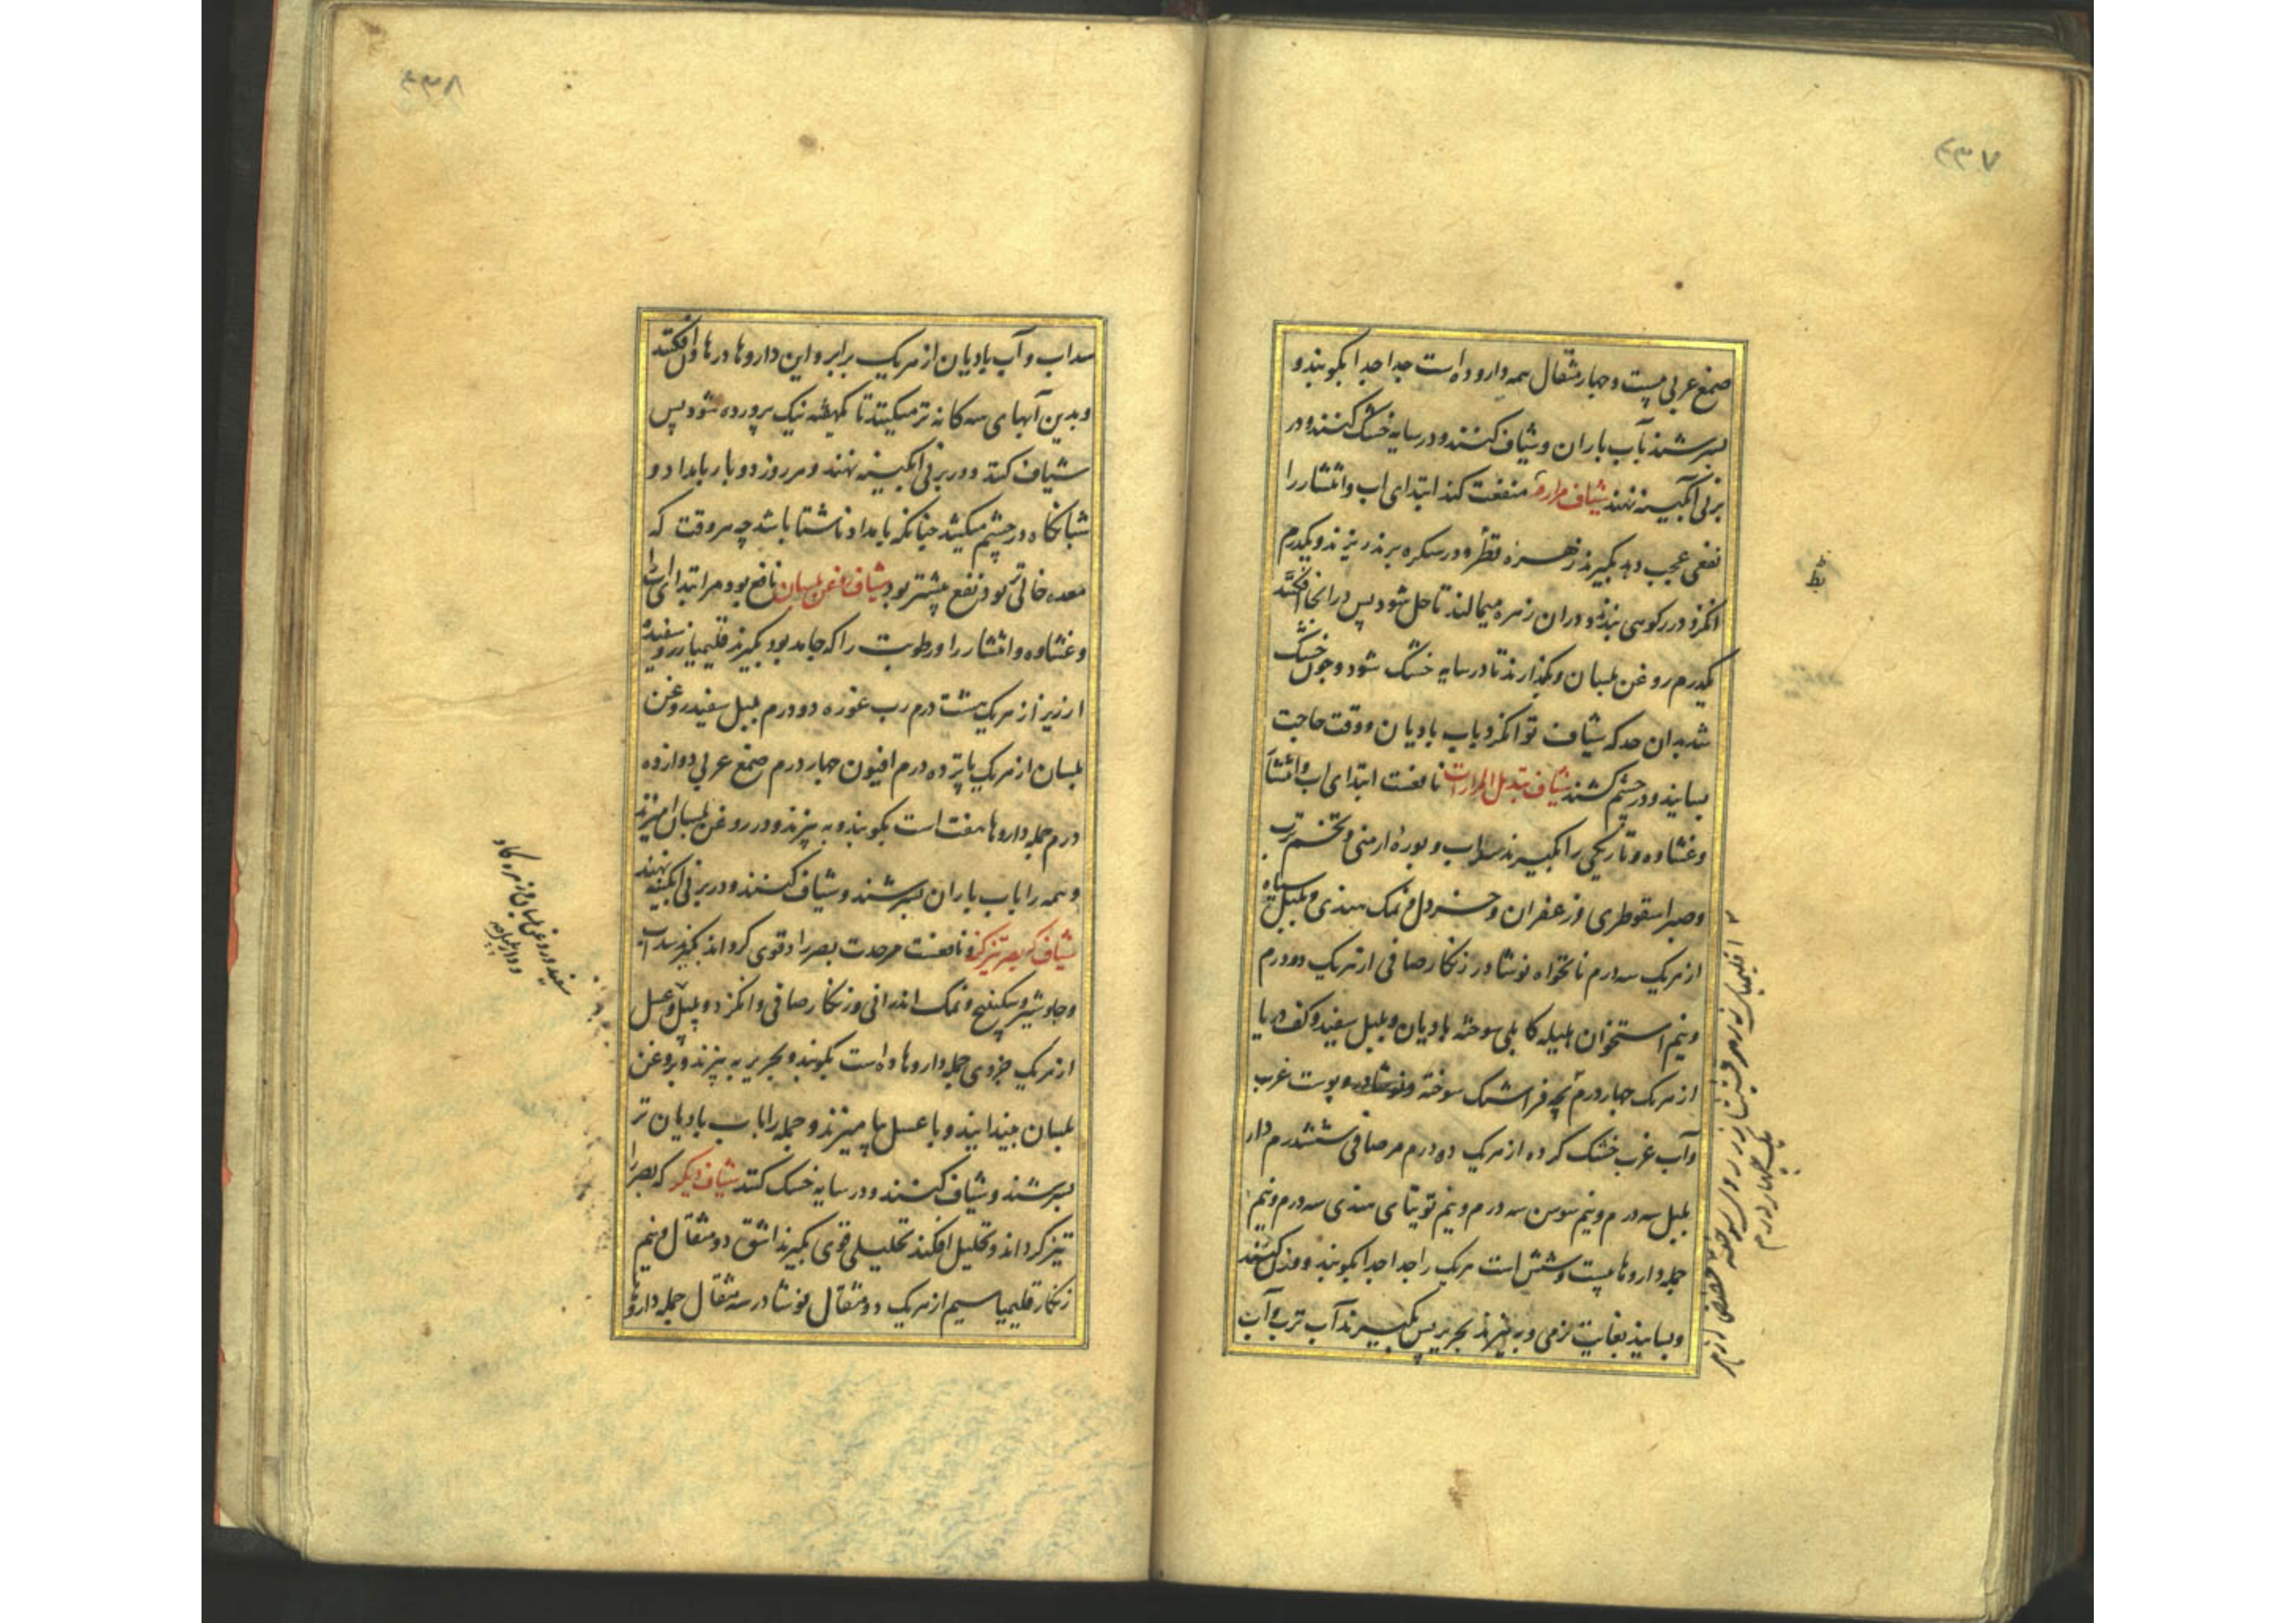 ۴۳۷
صمغ عربی بیست و چهار مثقال همه دارو ده است جدا جدا بکوبند و
بسرشند بآب باران و شیاف کنند و در سایه خشک کنند و در
برنی آبگینه نهند شیاف مرارة منفعت کند ابتدای آب و انتشار را
نفعی عجب دهد بگیرند زهره در سکره برند ریزند و یکدرم
انگزد در رکوی بندند و در آن زهره میمالند تا حل شود پس در آنجا افکنند
یکدرم روغن بلسان و بگذارند تا در سایه خشک شود و چون خشک
شد بدان حد که شیاف توان کرد باب بادیان و وقت حاجت
بسایند و در چشم کشند شیاف المرارات نافعست ابتدای آب و انتشار
و غشاوه و تاریکی را بگیرند سداب و بوره ارمنی و تخم ترب
و صبر اسقوطری و زعفران و خردل و نمک هندی و پلپل سیاه
از هریک سه درم نانخواه نوشادر زنگار صافی از هریک دو درم
و نیم استخوان هلیله کابلی سوخته بادیان و پلپل سفید و کف دریا
از هریک چهار درم بچه فراشتک سوخته و پوست غرب
و آب غرب خشک کرده از هریک ده درم مر صافی شش درم دار
پلپل سه درم و نیم سوسن سه درم و نیم توتیای هندی سه درم و نیم
جمله داروها بیست و شش است هریک را جدا جدا بکوبند و وزن کنند
و بسایند بغایت نرمی و به بیزند بحریر پس بگیرند آب ترب و آب
بط
۴۳۸
سداب و آب بادیان از هریک برابر و این داروها در هاون افکنند
و بدین آبهای سه گانه تر میکنند تا یکهفته نیک پرورده شود پس
شیاف کنند و در برنی آبگینه نهند و هر روز دو بار بامداد و
شبانگاه در چشم میکشد چنانکه بامداد ناشتا باشد چه هر وقت که
معده خالی تر بود نفع بیشتر بود شیاف روغن بلسان نافع بود مر ابتدای آب را
و غشاوه و انتشار را و رطوبت را که جامد بود بگیرند قلیمیا زر و سفیده
ارزیز از هریک هشت درم رب غوره دو درم پلپل سفید روغن
بلسان از هریک پانزده درم افیون چهار درم صمغ عربی دوازده
درم جمله داروها هفت است بکوبند و به بیزند و در روغن بلسان آمیزند
و همه را باب باران بسرشند و شیاف کنند و در برنی آبگینه نهند
شیاف که بصر تیز کند نافعست مر حدت بصر را و قوی گرداند بگیرند سداب
و جاوشیر و سکبینج و نمک اندرانی و زنگار صافی و انگزد و پلپل و عسل
از هریک جزوی جمله داروها ده است بکوبند و بحریر به بیزند و بروغن
بلسان بیندایند و با عسل بیامیزند و جمله را باب بادیان تر
بسرشند و شیاف کنند و در سایه خشک کنند شیاف دیگر که بصر را
تیز گرداند و تحلیل افکند تحلیلی قوی بگیرند اشق دو مثقال و نیم
زنگار قلیمیا سیم از هریک دو مثقال نوشادر سه مثقال جمله داروها